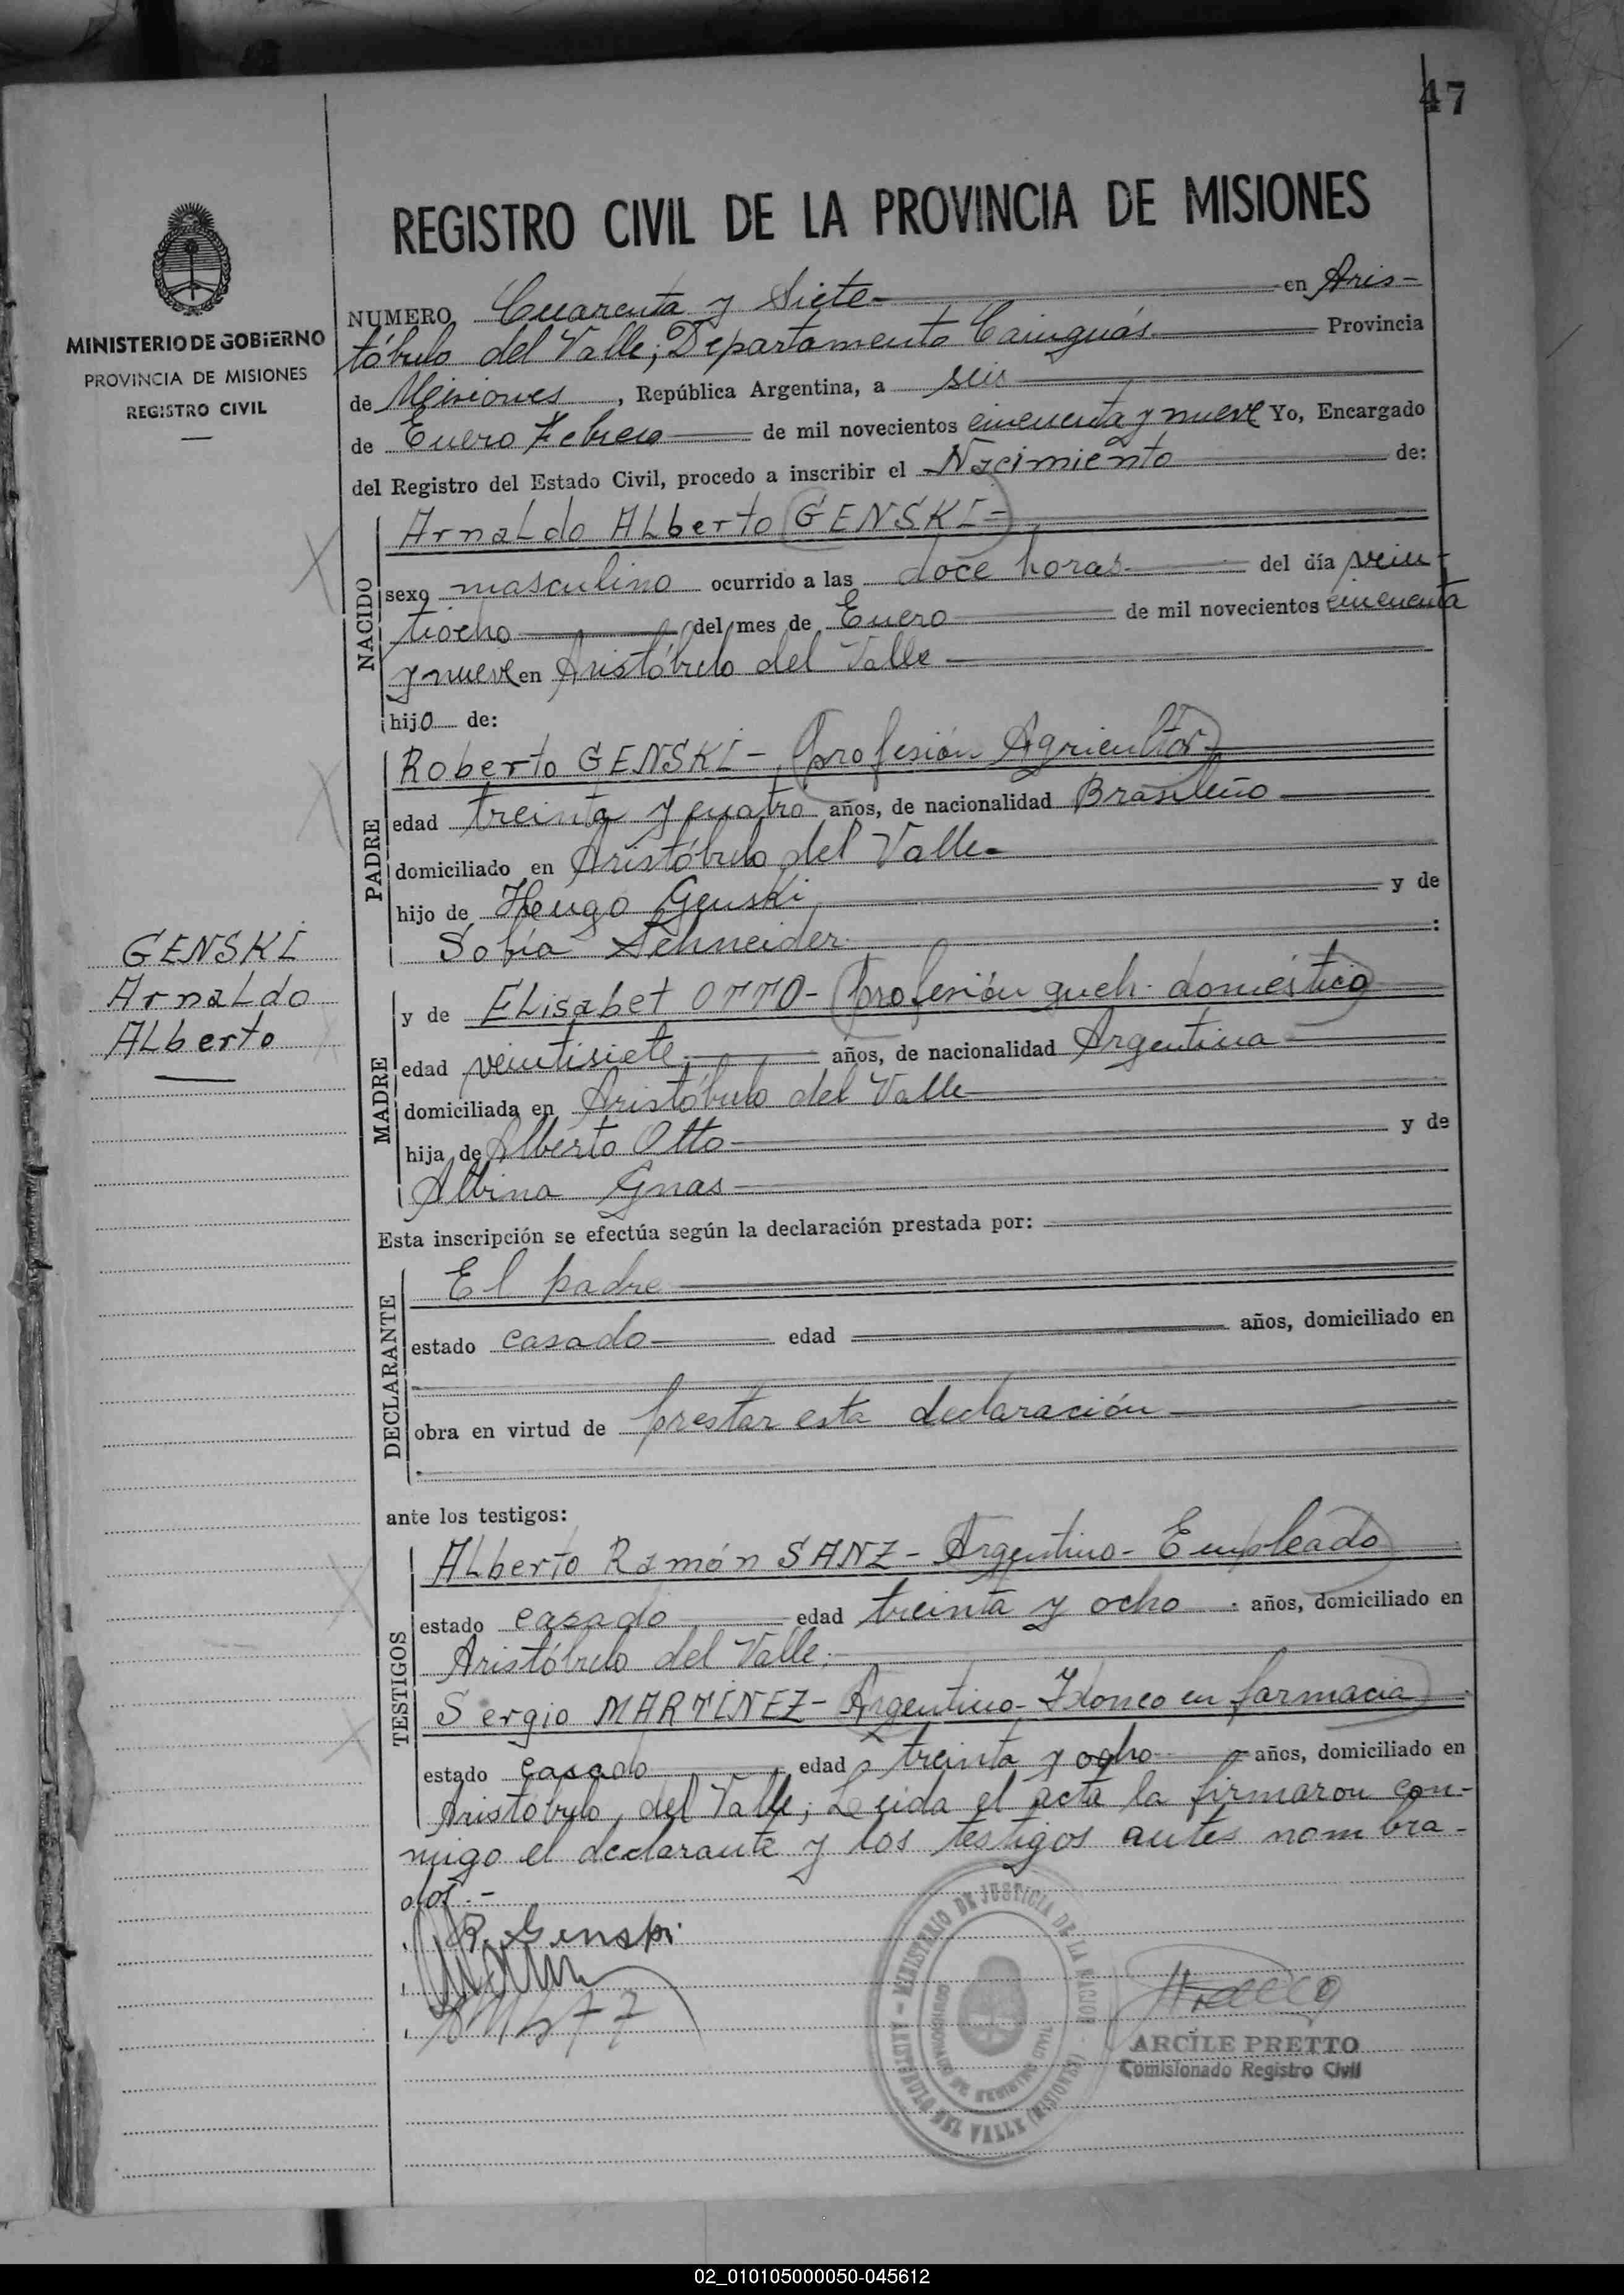 47
MINISTERIO DE GOBIERNO
PROVINCIA DE MISIONES
REGISTRO CIVIL
REGISTRO CIVIL DE LA PROVINCIA DE MISIONES
NUMERO Cuarenta y Siete en Aris-
tóbulo del Valle; Departamento Cainguás Provincia
de Misiones, República Argentina, a seis
de Enero Febrero de mil novecientos cincuenta y nueve Yo, Encargado
del Registro del Estado Civil, procedo a inscribir el Nacimiento de:
NACIDO
Arnaldo ALberto GENSKI-
sexo masculino ocurrido a las doce horas del día vein-
tiocho del mes de Enero de mil novecientos cincuenta
y nueve en Aristóbulo del Valle
hijo de:
PADRE
Roberto GENSKI- profesión Agricultor
edad treinta y cuatro años, de nacionalidad Brasileño
domiciliado en Aristóbulo del Valle-
hijo de Hugo Genski y de
Sofía Schneider:
GENSKI
ArnaLdo
ALberto
MADRE
y de ELisabet OTTO- profesión queh. doméstico
edad veintisiete años, de nacionalidad Argentina
domiciliada en Aristóbulo del Valle
hija de Alberto Otto y de
Albina Gnas
Esta inscripción se efectúa según la declaración prestada por:
DECLARANTE
El padre
estado casado edad años, domiciliado en
obra en virtud de prestar esta declaración
ante los testigos:
TESTIGOS
ALberto Ramón SANZ- Argentino- Empleado
estado casado edad treinta y ocho años, domiciliado en
Aristóbulo del Valle.
Sergio MARTINEZ- Argentino- Idoneo en farmacia
estado casado edad treinta y ocho años, domiciliado en
Aristóbulo del Valle; Leida el acta la firmaron con-
migo el declarante y los testigos antes nombra-
dos.-
R. Genski
MINISTERIO DE JUSTICIA DE LA NACION - ARISTOBULO DEL VALLE (MISIONES)
ARCILE PRETTO
Comisionado Registro Civil
02_010105000050-045612